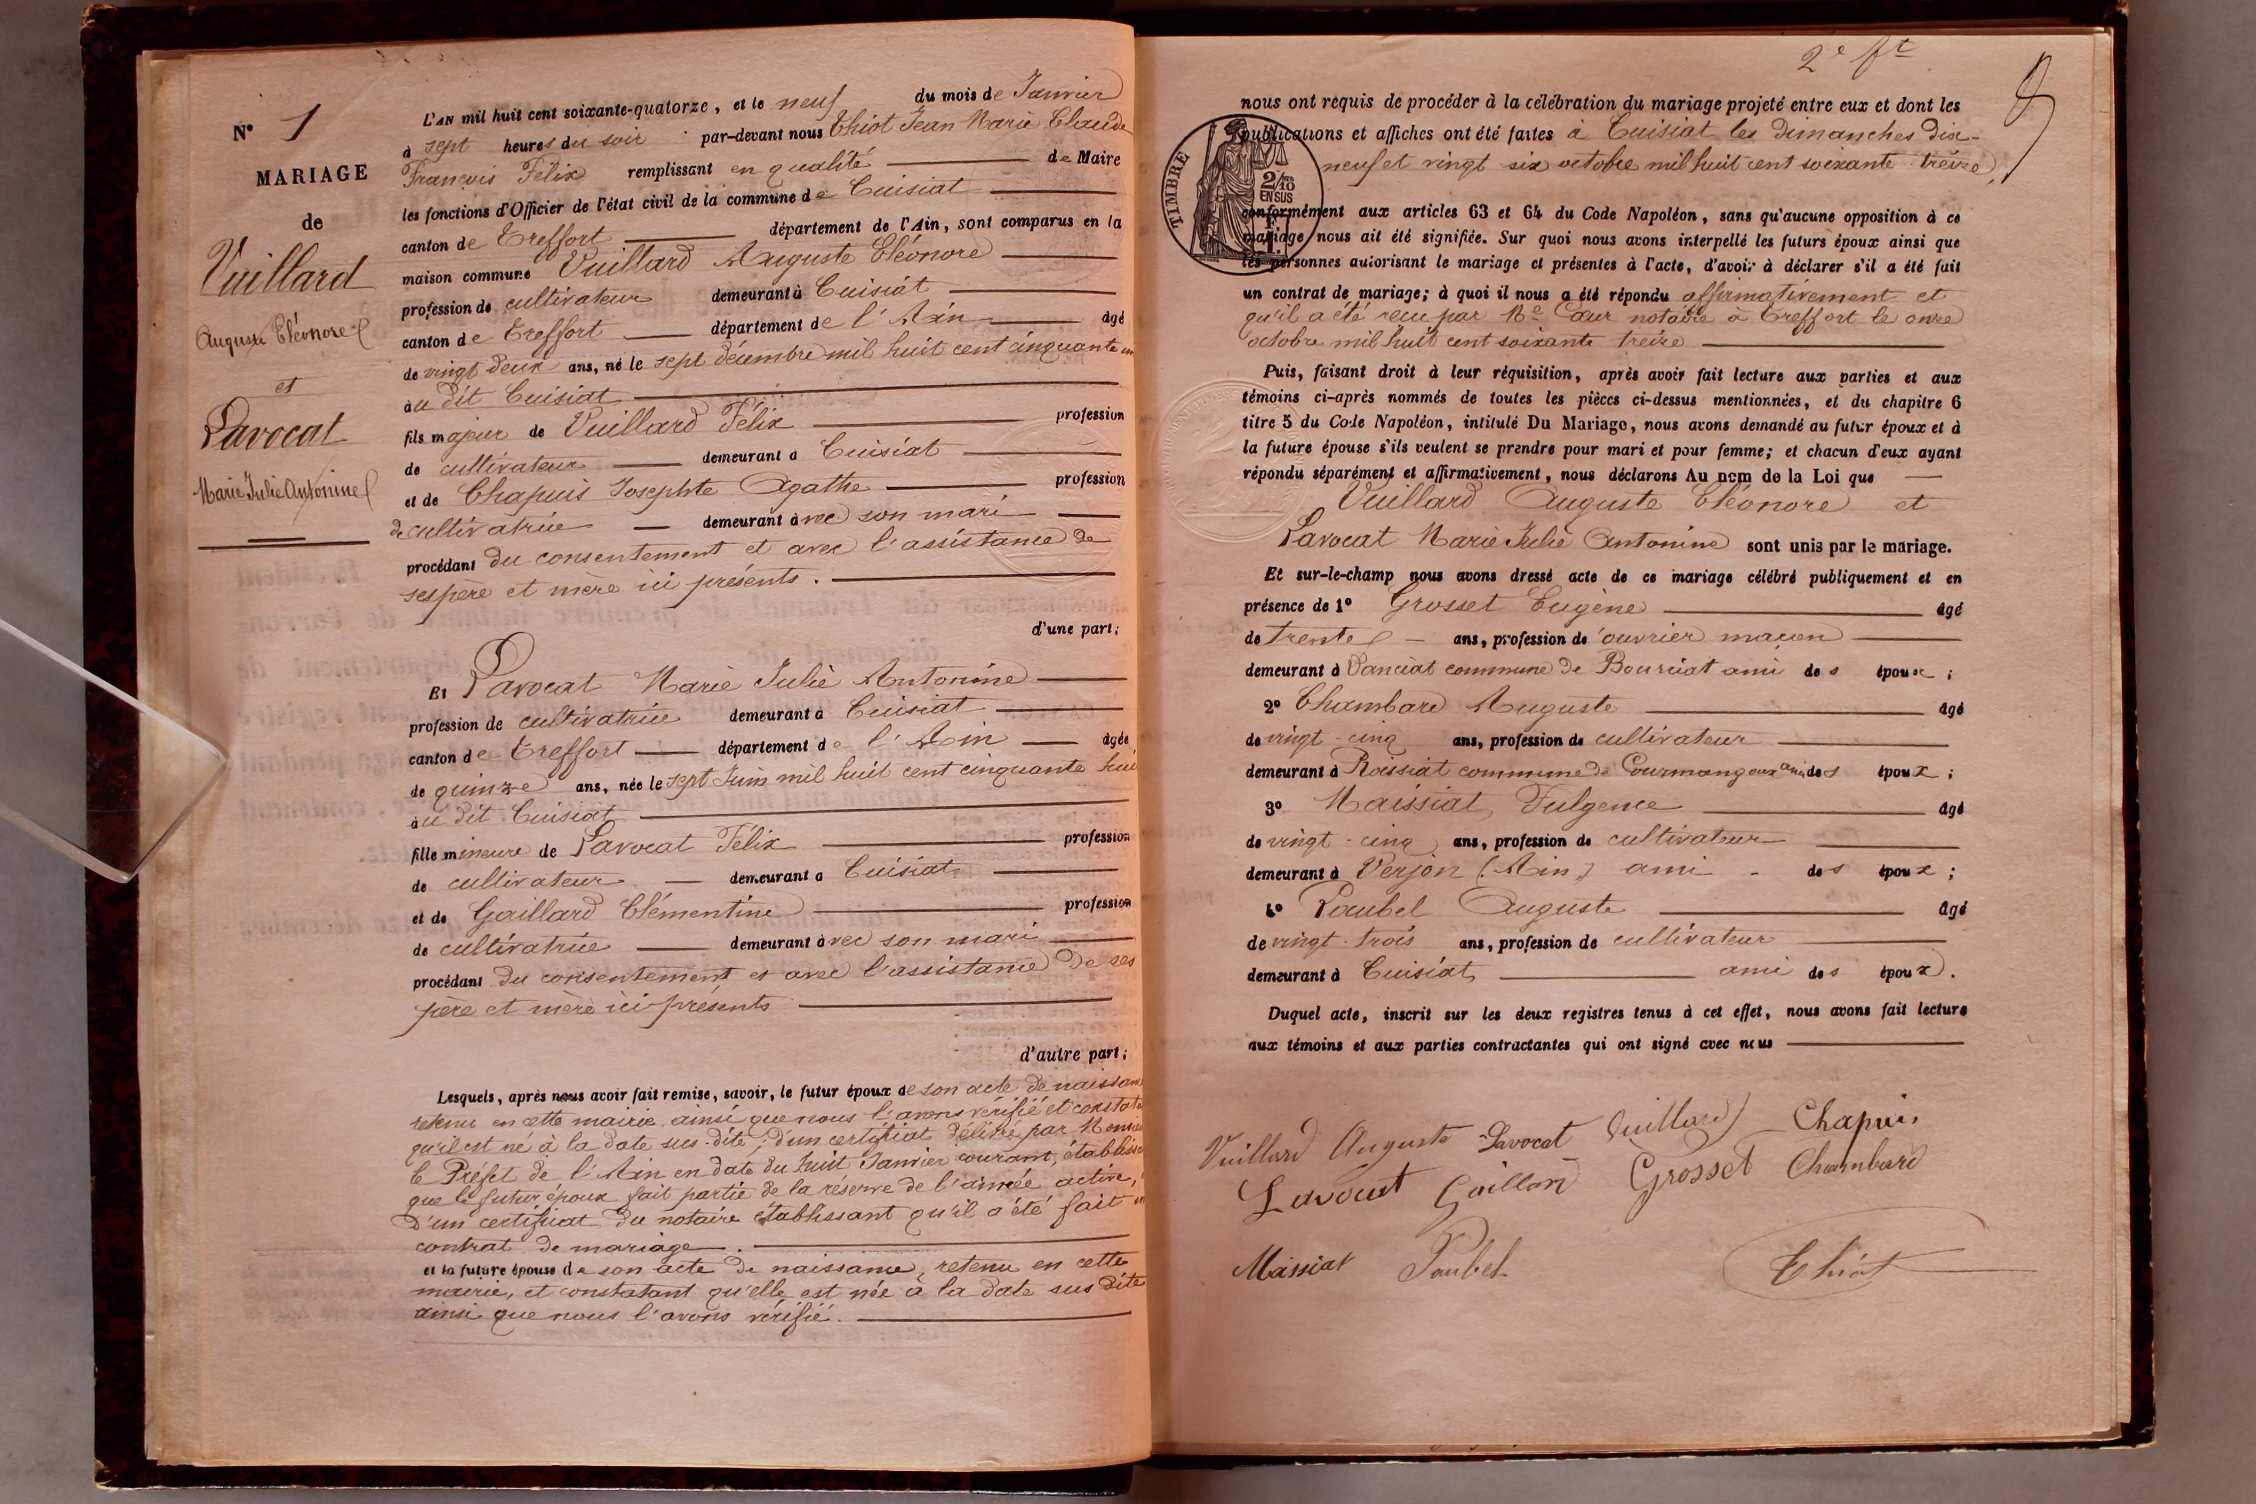 N° 1
MARIAGE
de
Vuillard
Auguste Eléonore
et
Lavocat
Marie Julie Antonine
L'AN mil huit cent soixante-quatorze, et le neuf du mois de Janvier
à sept heures du soir par-devant nous Thiot Jean Marie Claude
François Félix remplissant en qualité de Maire
les fonctions d'Officier de l'état civil de la commune de Cuisiat
canton de Treffort département de l'Ain, sont comparus en la
maison commune Vuillard Auguste Eléonore
profession de cultivateur demeurant à Cuisiat
canton de Treffort département de l'Ain âgé
de vingt deux ans, né le sept décembre mil huit cent cinquante un
au dit Cuisiat
fils majeur de Vuillard Félix profession
de cultivateur demeurant à Cuisiat
et de Chapuis Josephte Agathe profession
de cultivatrice demeurant avec son mari
procédant du consentement et avec l'assistance de
ses père et mère ici présents.
d'une part;
Et Lavocat Marie Julie Antonine
profession de cultivatrice demeurant à Cuisiat
canton de Treffort département de l'Ain âgée
de quinze ans, née le sept Juin mil huit cent cinquante huit
au dit Cuisiat
fille mineure de Lavocat Félix profession
de cultivateur demeurant à Cuisiat
et de Gaillard Clémentine profession
de cultivatrice demeurant avec son mari
procédant du consentement et avec l'assistance de ses
père et mère ici présents
d'autre part;
Lesquels, après nous avoir fait remise, savoir, le futur époux de son acte de naissance
retenu en cette mairie ainsi que nous l'avons vérifié et constaté
qu'il est né à la date sus dite; d'un certificat délivré par Monsieur
le Préfet de l'Ain en date du huit Janvier courant, établissant
que le futur époux fait partie de la réserve de l'armée active,
d'un certificat du notaire établissant qu'il a été fait un
contrat de mariage.
et la future épouse de son acte de naissance, retenu en cette
mairie, et constatant qu'elle est née à la date sus dite
ainsi que nous l'avons vérifié.
2e ft
nous ont requis de procéder à la célébration du mariage projeté entre eux et dont les
publications et affiches ont été faites à Cuisiat les dimanches dix-
neuf et vingt six octobre mil huit cent soixante treize,
TIMBRE
2/10
EN SUS
1 F
conformément aux articles 63 et 64 du Code Napoléon, sans qu'aucune opposition à ce
mariage nous ait été signifiée. Sur quoi nous avons interpellé les futurs époux ainsi que
les personnes autorisant le mariage et présentes à l'acte, d'avoir à déclarer s'il a été fait
un contrat de mariage; à quoi il nous a été répondu affirmativement et
qu'il a été reçu par Me Cœur notaire à Treffort le onze
octobre mil huit cent soixante treize
Puis, faisant droit à leur réquisition, après avoir fait lecture aux parties et aux
témoins ci-après nommés de toutes les pièces ci-dessus mentionnées, et du chapitre 6
titre 5 du Code Napoléon, intitulé Du Mariage, nous avons demandé au futur époux et à
la future épouse s'ils veulent se prendre pour mari et pour femme; et chacun d'eux ayant
répondu séparément et affirmativement, nous déclarons Au nom de la Loi que
Vuillard Auguste Eléonore et
Lavocat Marie Julie Antonine sont unis par le mariage.
Et sur-le-champ nous avons dressé acte de ce mariage célébré publiquement et en
présence de 1° Grosset Eugène âgé
de trente ans, profession de ouvrier maçon
demeurant à Sanciat commune de Bourciat ami des époux;
2° Chambard Auguste âgé
de vingt-cinq ans, profession de cultivateur
demeurant à Roissiat commune de Courmangoux ami des époux;
3° Maissiat Fulgence âgé
de vingt-cinq ans, profession de cultivateur
demeurant à Verjon (Ain) ami des époux;
4° Paubel Auguste âgé
de vingt-trois ans, profession de cultivateur
demeurant à Cuisiat ami des époux.
Duquel acte, inscrit sur les deux registres tenus à cet effet, nous avons fait lecture
aux témoins et aux parties contractantes qui ont signé avec nous
Vuillard Auguste Lavocat Vuillard Chapuis
Lavocat Gaillard Grosset Chambard
Maissiat Paubel Thiot